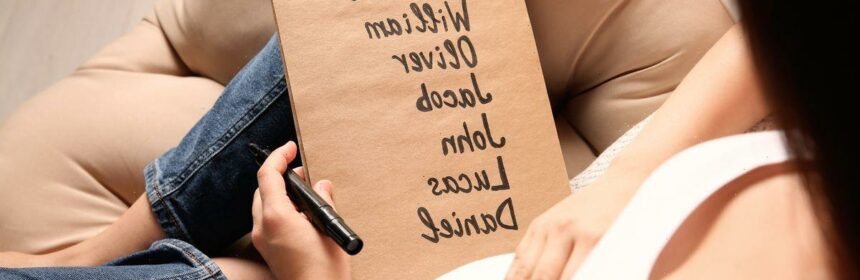 William
Oliver
Jacob
John
Lucas
Daniel